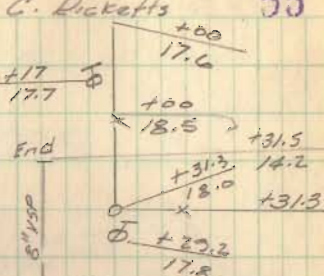 C. Ricketts 55
+00
17.6
+17
17.7
+00
18.5
End
+31.5
14.2
+31.3
18.0
+31.3
8" VSP
+29.2
17.8